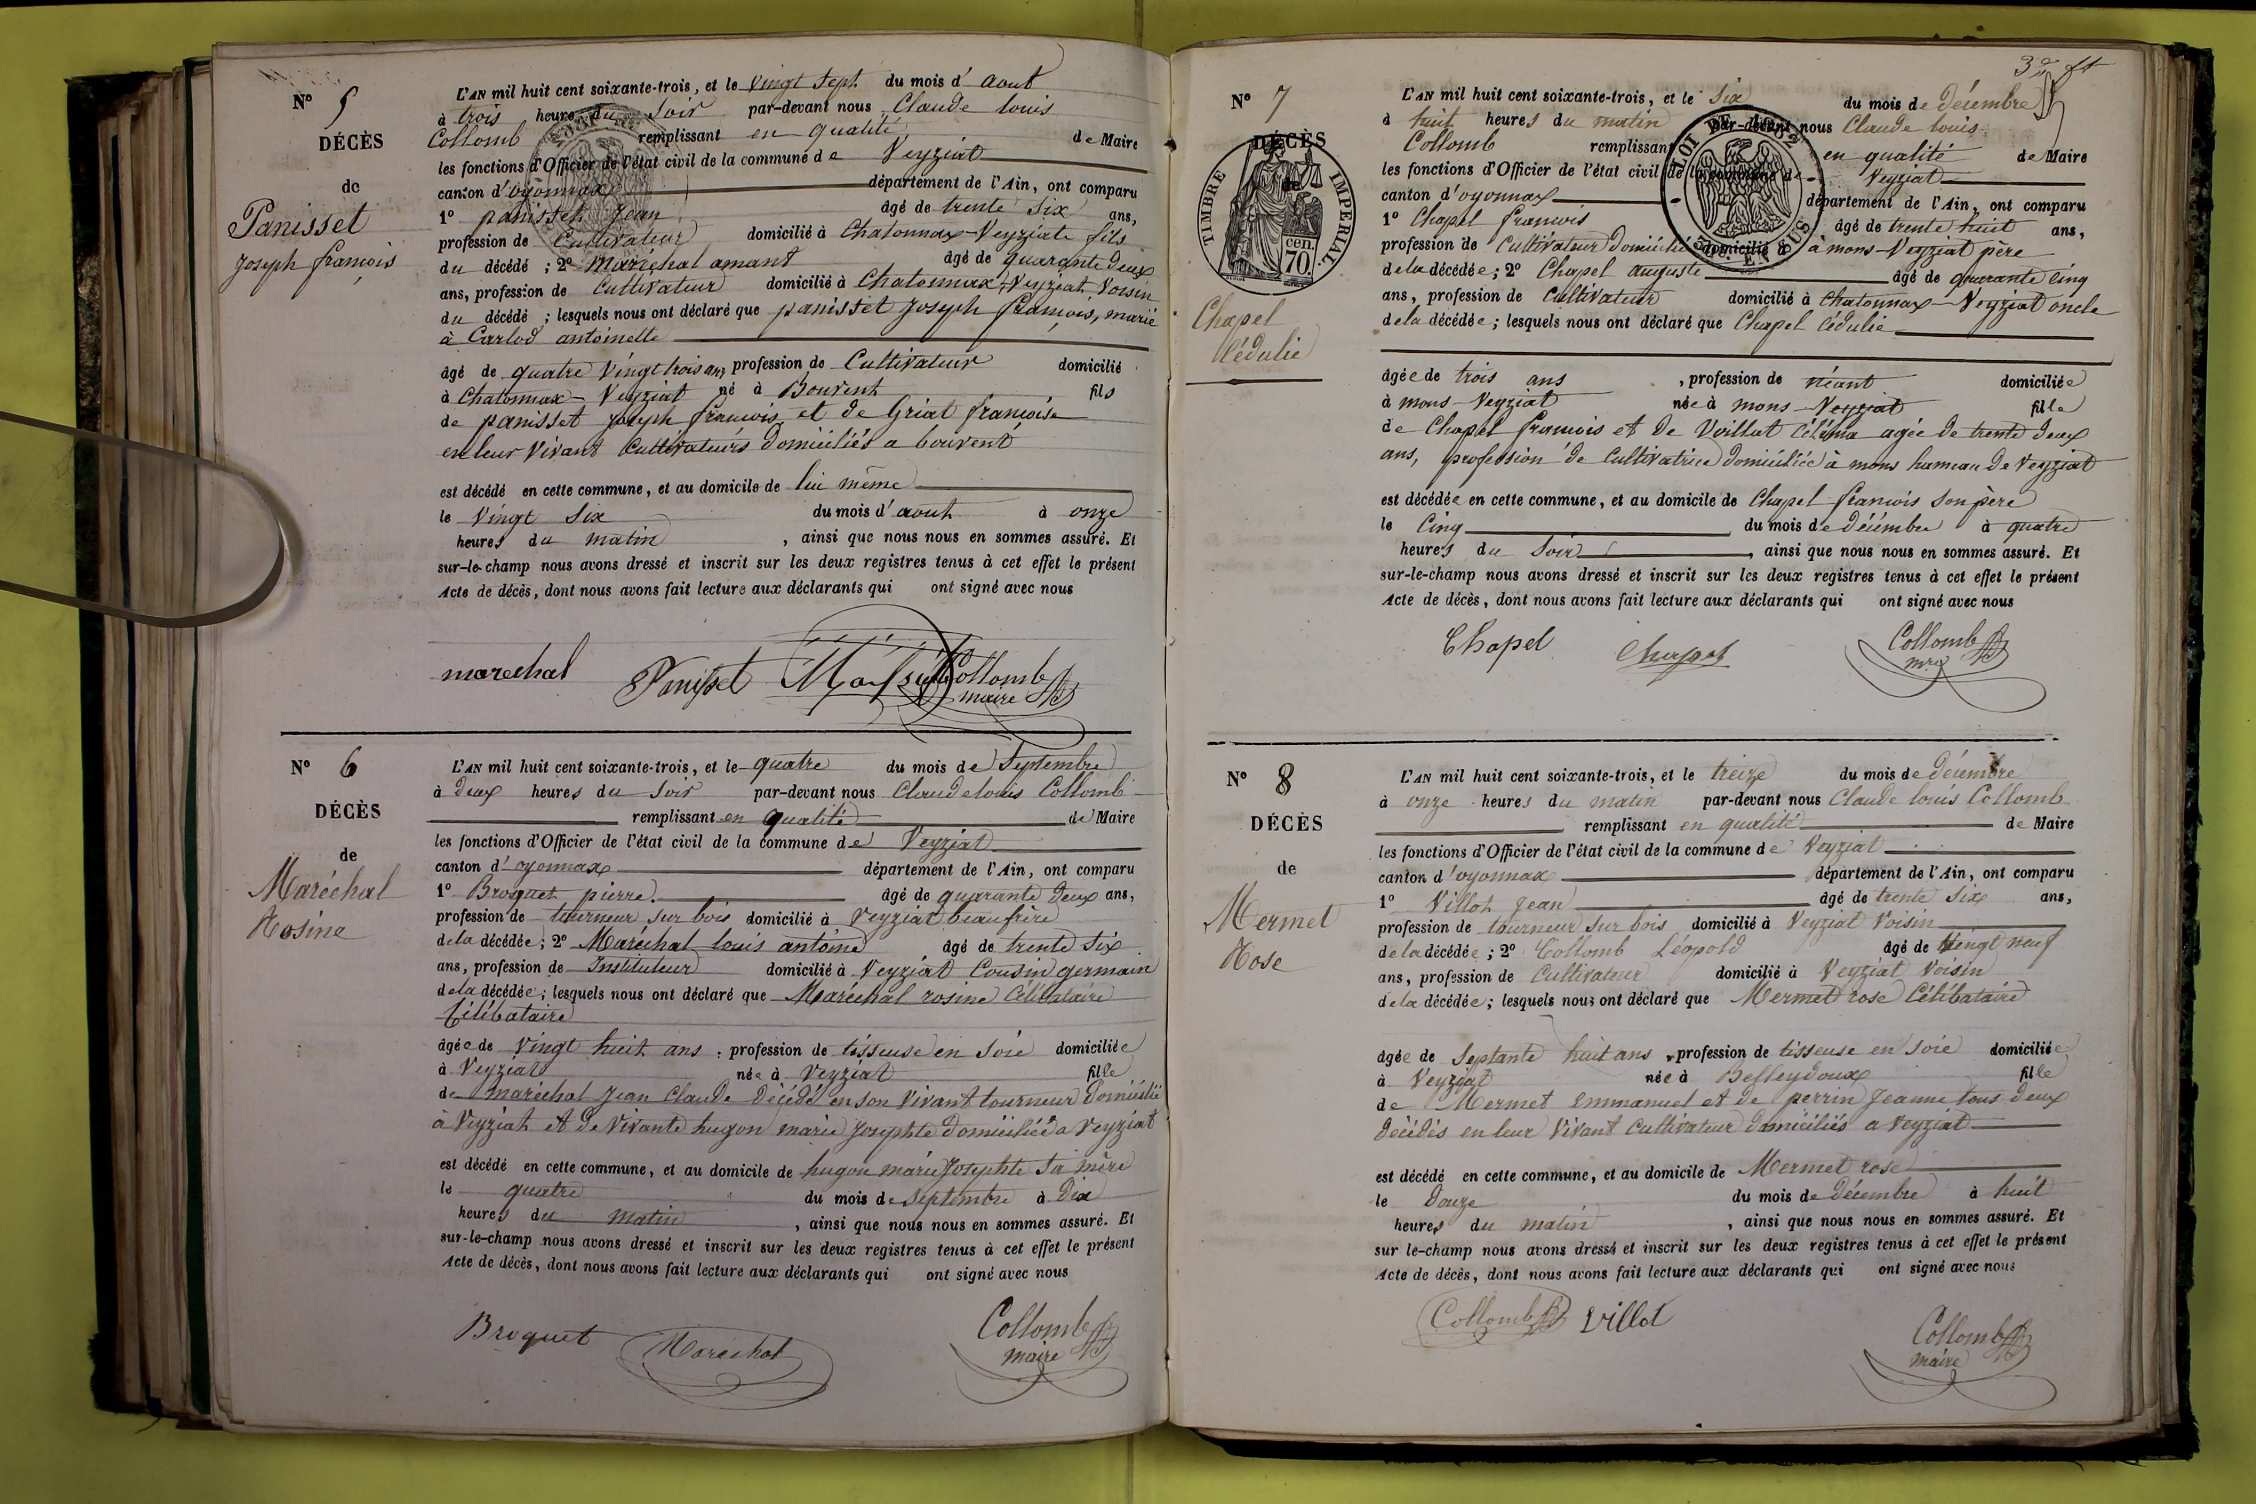 N° 5
DÉCÈS
de
Panisset
Joseph françois
L'AN mil huit cent soixante-trois, et le vingt sept du mois d'aout
à trois heures du soir par-devant nous Claude louis
Collomb remplissant en qualité de Maire
les fonctions d'Officier de l'état civil de la commune de Veyziat
canton d'oyonnax département de l'Ain, ont comparu
1° panisset Jean âgé de trente six ans,
profession de Cultivateur domicilié à Chatonnax-Veyziat fils
du décédé ; 2° Maréchal amant âgé de quarante deux
ans, profession de Cultivateur domicilié à Chatonnax, Veyziat, Voisin
du décédé ; lesquels nous ont déclaré que panisset Joseph françois, marié
à Carlod antoinette
âgé de quatre vingt trois ans profession de Cultivateur domicilié
à Chatonnax - Veyziat né à Bouvent fils
de panisset Joseph françois et de Griat françoise
en leur vivant Cultivateurs domiciliés a bouvent
est décédé en cette commune, et au domicile de lui même
le vingt six du mois d'aout à onze
heures du matin , ainsi que nous nous en sommes assuré. Et
sur-le-champ nous avons dressé et inscrit sur les deux registres tenus à cet effet le présent
Acte de décès, dont nous avons fait lecture aux déclarants qui ont signé avec nous
marechal Panisset Collomb
maire
N° 6
DÉCÈS
de
Maréchal
Rosine
L'AN mil huit cent soixante-trois, et le quatre du mois de Septembre
à deux heures du soir par-devant nous Claude louis Collomb
remplissant en qualité de Maire
les fonctions d'Officier de l'état civil de la commune de Veyziat
canton d'oyonnax département de l'Ain, ont comparu
1° Broquet pierre âgé de quarante deux ans,
profession de tourneur sur bois domicilié à Veyziat beaufrère
de la décédée ; 2° Maréchal louis antoine âgé de trente six
ans, profession de Instituteur domicilié à Veyziat Cousin germain
de la décédée ; lesquels nous ont déclaré que Maréchal rosine Célibataire
Célibataire
âgée de vingt huit ans , profession de tisseuse en soie domiciliée
à Veyziat née à Veyziat fille
de maréchal Jean Claude décédé en son vivant tourneur domicilié
à Veyziat et de vivante hugon marie Josephte domiciliée a Veyziat
est décédé en cette commune, et au domicile de hugon marie Josephte sa mère
le quatre du mois de Septembre à dix
heures du matin , ainsi que nous nous en sommes assuré. Et
sur-le-champ nous avons dressé et inscrit sur les deux registres tenus à cet effet le présent
Acte de décès, dont nous avons fait lecture aux déclarants qui ont signé avec nous
Broquet Marechal Collomb
maire
N° 7
DÉCÈS
de
TIMBRE IMPÉRIAL.
cen.
70.
Chapel
Cédulie
LOI DE 1862
2 D. EN SUS
L'AN mil huit cent soixante-trois, et le six du mois de décembre
à huit heures du matin par-devant nous Claude louis
Collomb remplissant en qualité de Maire
les fonctions d'Officier de l'état civil de la commune de Veyziat
canton d'oyonnax département de l'Ain, ont comparu
1° Chapel françois âgé de trente huit ans,
profession de Cultivateur domicilié domicilié à à mons-Veyziat père
de la décédée ; 2° Chapel auguste âgé de quarante cinq
ans, profession de Cultivateur domicilié à Chatonnax-Veyziat oncle
de la décédée ; lesquels nous ont déclaré que Chapel Cédulie
âgée de trois ans , profession de néant domiciliée
à mons-Veyziat née à mons-Veyziat fille
de Chapel françois et de Vuillat agée de trente deux
ans, profession de Cultivatrice domiciliée à mons hameau de Veyziat
est décédée en cette commune, et au domicile de Chapel françois son père
le cinq du mois de décembre à quatre
heures du soir , ainsi que nous nous en sommes assuré. Et
sur-le-champ nous avons dressé et inscrit sur les deux registres tenus à cet effet le présent
Acte de décès, dont nous avons fait lecture aux déclarants qui ont signé avec nous
Chapel Chapel Collomb
mre
N° 8
DÉCÈS
de
Mermet
Rose
L'AN mil huit cent soixante-trois, et le treize du mois de décembre
à onze heures du matin par-devant nous Claude louis Collomb
remplissant en qualité de Maire
les fonctions d'Officier de l'état civil de la commune de Veyziat
canton d'oyonnax département de l'Ain, ont comparu
1° Villot Jean âgé de trente six ans,
profession de tourneur sur bois domicilié à Veyziat Voisin
de la décédée ; 2° Collomb Léopold âgé de vingt neuf
ans, profession de Cultivateur domicilié à Veyziat Voisin
de la décédée ; lesquels nous ont déclaré que Mermet rose Célibataire
âgée de septante huit ans , profession de tisseuse en soie domiciliée
à Veyziat née à Belleydoux fille
de Mermet Emmanuel et de perrin Jeanne tous deux
décédés en leur vivant Cultivateur domiciliés a Veyziat
est décédé en cette commune, et au domicile de Mermet rose
le douze du mois de décembre à huit
heures du matin , ainsi que nous nous en sommes assuré. Et
sur le-champ nous avons dressé et inscrit sur les deux registres tenus à cet effet le présent
Acte de décès, dont nous avons fait lecture aux déclarants qui ont signé avec nous
Collomb Villot Collomb
maire